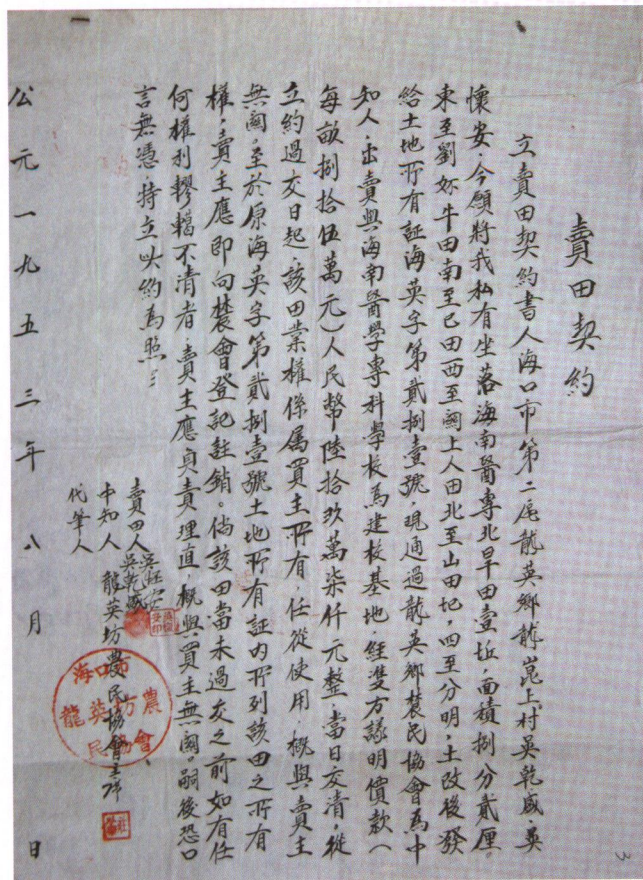 賣田契約
立賣田契約書人海口市第二區龍英鄉龍崑上村吳乾盛、吳
懷安，今願將我私有坐落海南醫專北旱田壹坵，面積捌分貳厘。
東至劉妳牛田南至己田西至國上人田北至山田圯，四至分明，土改後發
給土地所有証海英字第貳捌壹號，現通過龍英鄉農民協會為中
知人，出賣與海南醫學專科學校為建校基地，經雙方議明價款（
每畝捌拾伍萬元）人民幣陸拾玖萬柒仟元整，當日交清，從
立約過交日起，該田業權係屬買主所有，任從使用，概與賣主
無関，至於原海英字第貳捌壹號土地所有証內所列該田之所有
權，賣主應即向農會登記註銷。倘該田當未過交之前如有任
何權利轇轕不清者，賣主應負責理直，概與買主無関，嗣後恐口
言無憑，特立此約為照
賣田人 吳乾盛
中知人 龍英坊農民協會主席
代筆人
海口市
龍英坊農
民協會
公元一九五三年八月 日
3